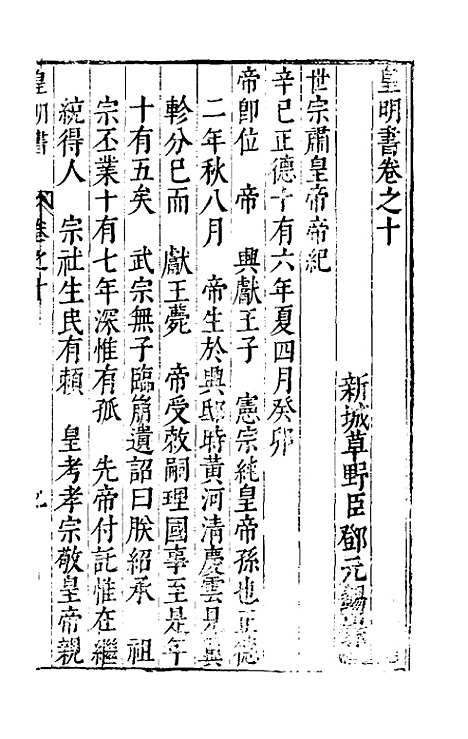 皇明書卷之十
新城草野臣鄧元錫
世宗肅皇帝帝紀
辛巳正德十有六年夏四月癸卯
帝卽位　帝　興獻王子　憲宗純皇帝孫也正德
二年秋八月　帝生於興邸時黃河清慶雲見翼
軫分已而　獻王薨　帝受敕嗣理國事至是年
十有五矣　武宗無子臨崩遺詔曰朕紹承　祖
宗丕業十有七年深惟有孤　先帝付託惟在繼
統得人　宗社生民有賴　皇考孝宗敬皇帝親
皇明書　卷之十